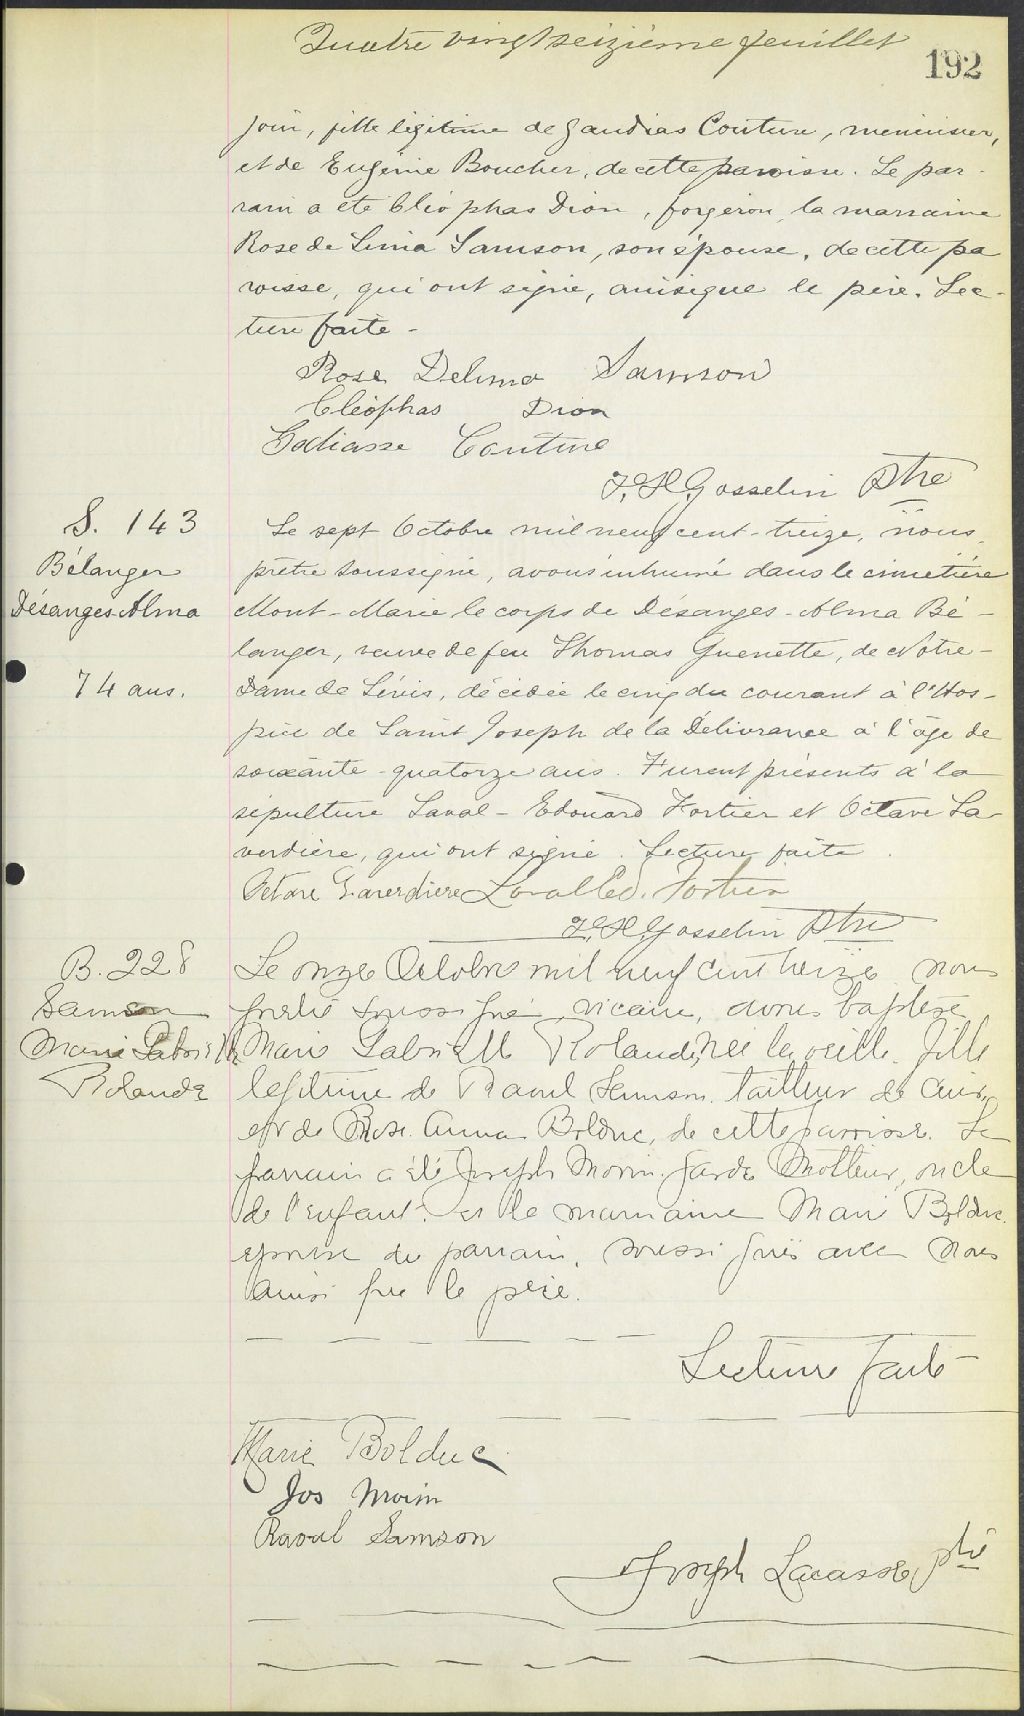 Quatre vingt seizième feuillet
192
jour, fille légitime de Gaudias Couture, menuisier,
et de Eugénie Boucher, de cette paroisse. Le par-
rain a été Cléophas Dion, forgeron, la marraine
Rose de Lima Samson, son épouse, de cette pa
roisse, qui ont signé, ainsi que le père. Lec-
ture faite -
Rose Delima Samson
Cléophas Dion
Godiasse Couture
J. H. Gosselin Ptre
S. 143
Bélanger
Désanges-Alma
74 ans.
Le sept Octobre mil neuf cent-treize, nous,
prêtre soussigné, avons inhumé dans le cimetière
Mont-Marie le corps de Désanges-Alma Bé-
langer, veuve de feu Thomas Guenette, de Notre-
Dame de Lévis, décédée le cinq du courant à l'Hos-
pice de Saint Joseph de la Délivrance à l'âge de
soixante-quatorze ans. Furent présents à la
sépulture Laval-Edouard Fortier et Octave La-
verdière, qui ont signé. Lecture faite.
Octave Laverdière Laval Ed. Fortier
J. H. Gosselin Ptre
B. 228
Samson
Marie Gabrielle
Rolande
Le onze Octobre mil neuf cent treize nous
prêtre soussigné, vicaire, avons baptisé
Marie Gabrielle Rolande, née la veille, fille
légitime de Raoul Samson, tailleur de cuir,
et de Rose Anna Bolduc, de cette paroisse. Le
parrain a été Joseph Morin, garde moteur, oncle
de l'enfant et la marraine Marie Bolduc
épouse du parrain, soussignés avec nous
ainsi que le père.
Lecture faite
Marie Bolduc
Jos Morin
Raoul Samson
Joseph Lacasse, ptre